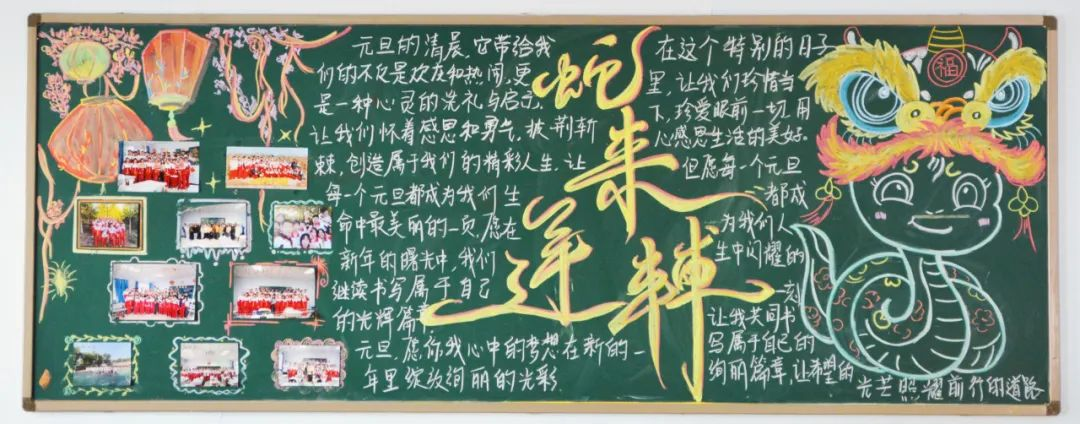 元旦的清晨,它带给我
们的不仅是欢庆和热闹,更
是一种心灵的洗礼与启示.
让我们怀着感恩和勇气,披荆斩
棘,创造属于我们的精彩人生.让
每一个元旦都成为我们生
命中最美丽的一页.愿在
新年的曙光中,我们
继续书写属于自己
的光辉篇章
元旦,愿你我心中的梦想在新的一
年里绽放绚丽的光彩.
蛇来运转
在这个特别的日子
里,让我们珍惜当
下,珍爱眼前一切,用
心感恩生活的美好.
但愿每一个元旦
都成
为我们人
生中闪耀的
一刻
让我共同书
写属于自己的
绚丽篇章,让希望的
光芒照耀前行的道路
福